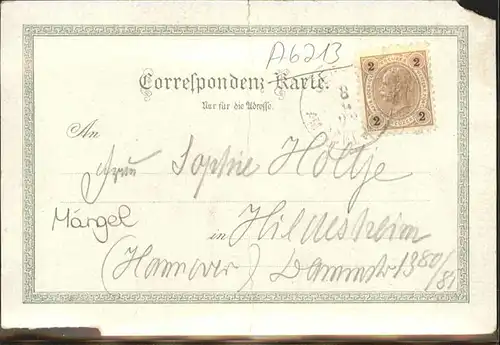 A6213
2 2
Correspondenz-Karte.
2 2
Nur für die Adresse.
An
Frau Sophie Höltje
Mängel
in Hildesheim
(Hannover) Dammstr 1380/81